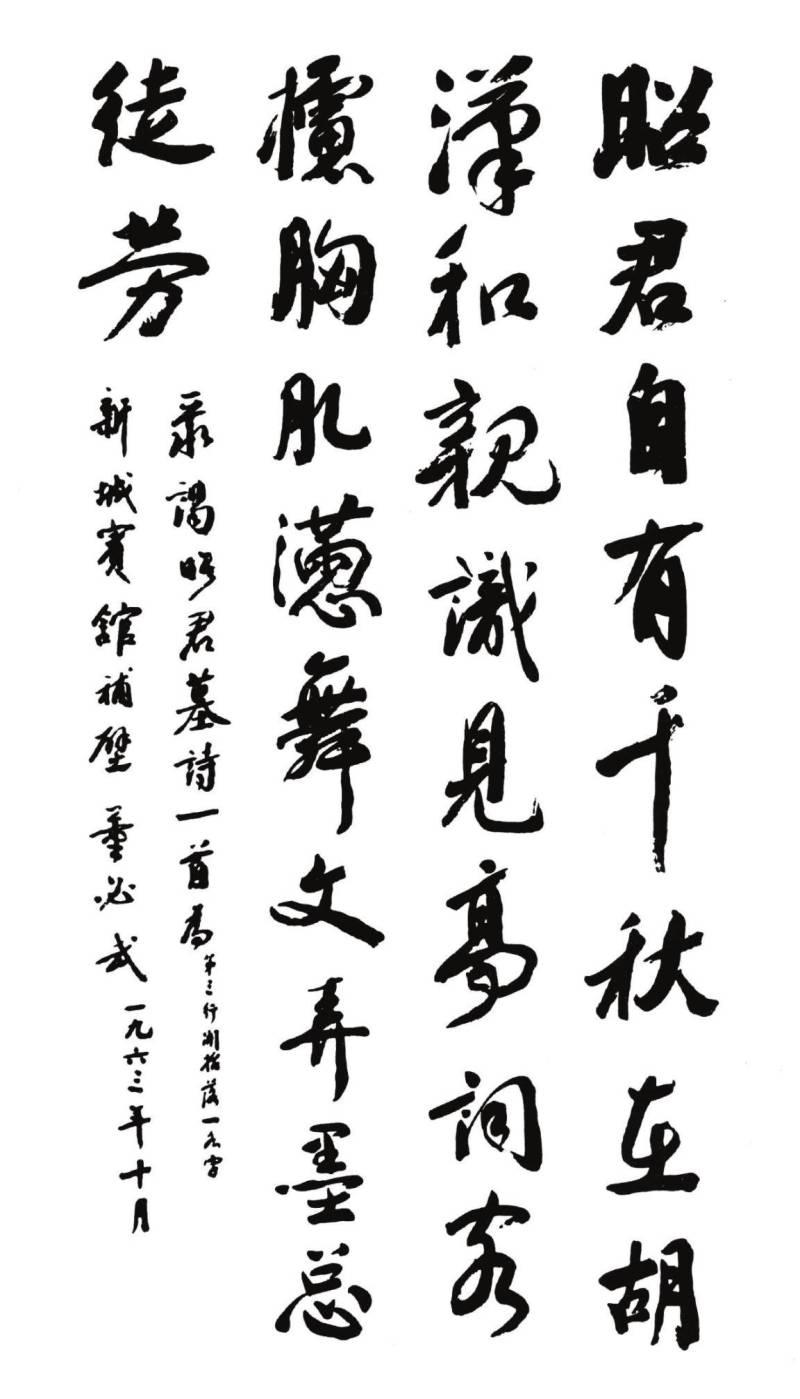 昭君自有千秋在胡
漢和親識見高詞客
攄胸肊懣舞文弄墨总
徒劳
录謁昭君墓詩一首為
第三行落一各字
新城賓館補壁 董必武 一九六三年十月